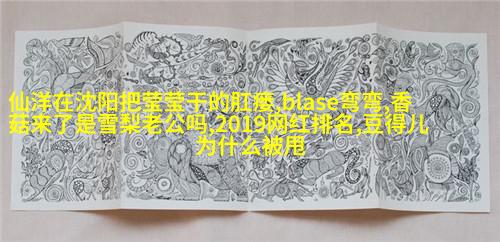 仙洋在沈阳把莹莹干的肛瘘,blase弯弯,香
菇来了是雪梨老公吗,2019网红排名,豆得儿
为什么被甩